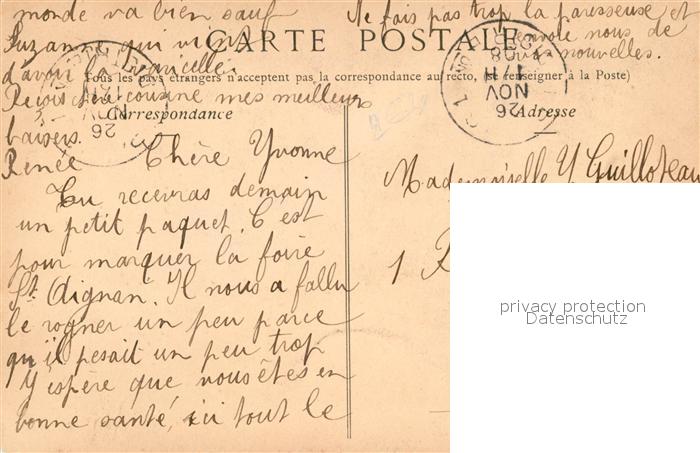 monde va bien sauf
Suzanne qui vient
d'avoir la varicelle.
Reçois chère cousine mes meilleurs
baisers.
Renée
Ne fais pas trop la paresseuse et
envoie nous de
vos nouvelles.
CARTE POSTALE
Tous les pays étrangers n'acceptent pas la correspondance au recto, (se renseigner à la Poste)
Correspondance
Adresse
26
NOV
08
26
Chère Yvonne
Tu recevras demain
un petit paquet. C'est
pour marquer la foire
St Aignan. Il nous a fallu
le rogner un peu parce
qu'il pesait un peu trop
J'espère que vous êtes en
bonne santé, ici tout le
Mademoiselle Y Guilloteau
1 R
privacy protection
Datenschutz